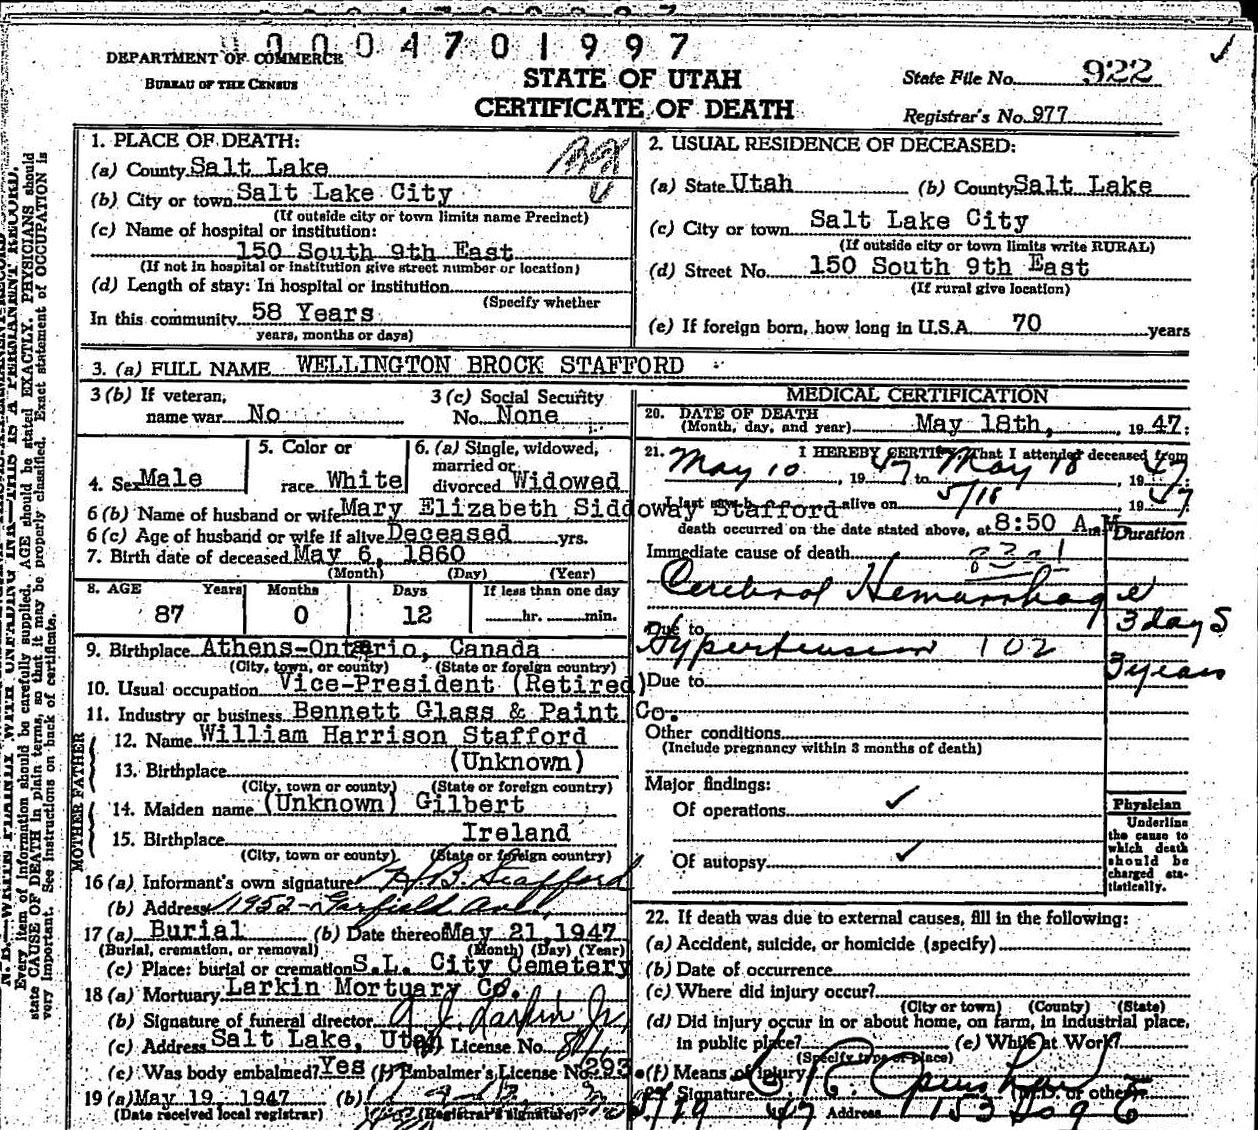 0004701997
DEPARTMENT OF COMMERCE
BUREAU OF THE CENSUS
STATE OF UTAH
CERTIFICATE OF DEATH
State File No. 922
Registrar's No. 977
1. PLACE OF DEATH:
(a) County Salt Lake
(b) City or town Salt Lake City
(If outside city or town limits name Precinct)
(c) Name of hospital or institution:
150 South 9th East
(If not in hospital or institution give street number or location)
(d) Length of stay: In hospital or institution
(Specify whether
In this community 58 Years
years, months or days)
2. USUAL RESIDENCE OF DECEASED:
(a) State Utah (b) County Salt Lake
(c) City or town Salt Lake City
(If outside city or town limits write RURAL)
(d) Street No. 150 South 9th East
(If rural give location)
(e) If foreign born, how long in U.S.A. 70 years
3. (a) FULL NAME WELLINGTON BROCK STAFFORD
3 (b) If veteran,
name war No
3 (c) Social Security
No. None
4. Sex Male
5. Color or
race White
6. (a) Single, widowed,
married or
divorced Widowed
6 (b) Name of husband or wife Mary Elizabeth Siddoway Stafford
6 (c) Age of husband or wife if alive Deceased yrs.
7. Birth date of deceased May 6, 1860
(Month) (Day) (Year)
8. AGE Years Months Days If less than one day
87 0 12 hr. min.
9. Birthplace Athens-Ontario, Canada
(City, town, or county) (State or foreign country)
10. Usual occupation Vice-President (Retired)
11. Industry or business Bennett Glass & Paint Co.
FATHER
12. Name William Harrison Stafford
13. Birthplace (Unknown)
(City, town or county) (State or foreign country)
MOTHER
14. Maiden name (Unknown) Gilbert
15. Birthplace Ireland
(City, town or county) (State or foreign country)
16 (a) Informant's own signature B. Stafford
(b) Address 1952 - Garfield Ave.
17 (a) Burial (b) Date thereof May 21, 1947
(Burial, cremation, or removal) (Month) (Day) (Year)
(c) Place: burial or cremation S.L. City Cemetery
18 (a) Mortuary Larkin Mortuary Co.
(b) Signature of funeral director Larkin Jr.
(c) Address Salt Lake, Utah License No.
(e) Was body embalmed? Yes (f) Embalmer's License No. 293
19 (a) May 19, 1947 (b)
(Date received local registrar) (Registrar's signature)
MEDICAL CERTIFICATION
20. DATE OF DEATH
(Month, day, and year) May 18th, 1947
21. I HEREBY CERTIFY, That I attended deceased from
May 10, 1947 to May 18, 1947
I last saw h alive on 5/18 1947
death occurred on the date stated above, at 8:50 A.M.
Duration
Immediate cause of death
Cerebral Hemorrhage
3 days
Due to
Hypertension 102
3 years
Due to
Other conditions
(Include pregnancy within 3 months of death)
Major findings:
Of operations ✓
Of autopsy ✓
Physician
Underline
the cause to
which death
should be
charged sta-
tistically.
22. If death was due to external causes, fill in the following:
(a) Accident, suicide, or homicide (specify)
(b) Date of occurrence
(c) Where did injury occur?
(City or town) (County) (State)
(d) Did injury occur in or about home, on farm, in industrial place,
in public place? (e) While at Work?
(Specify type of place)
(f) Means of injury
23. Signature (M.D. or other)
Address 153 So 9 E
Every item of information should be carefully supplied. AGE should be stated EXACTLY. PHYSICIANS should
state CAUSE OF DEATH in plain terms, so that it may be properly classified. Exact statement of OCCUPATION is
very important. See instructions on back of certificate.